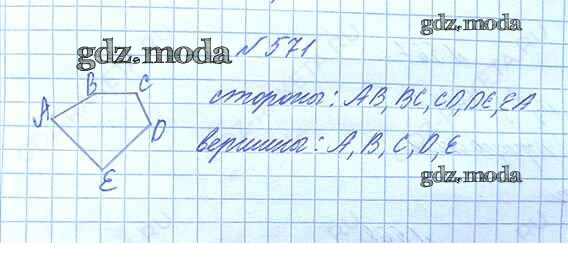 gdz.moda
№571
gdz.moda
B C
A
стороны: AB, BC, CD, DE, EA
D
вершина: A, B, C, D, E
E
gdz.moda